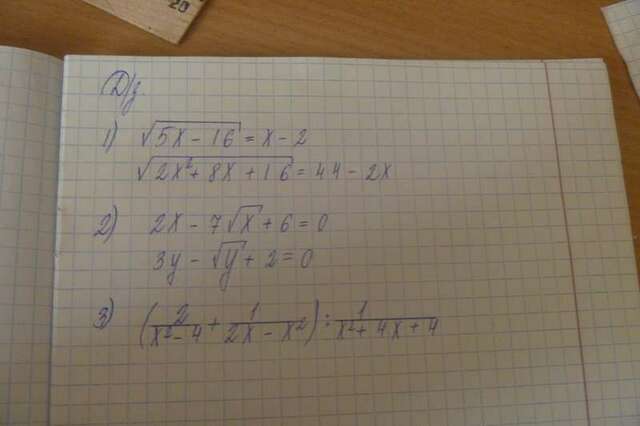 20
Д/з
1) √5x - 16 = x - 2
√2x² + 8x + 16 = 44 - 2x
2) 2x - 7√x + 6 = 0
3y - √y + 2 = 0
3) (2/x² - 4 + 1/2x - x²) : 1/x² + 4x + 4